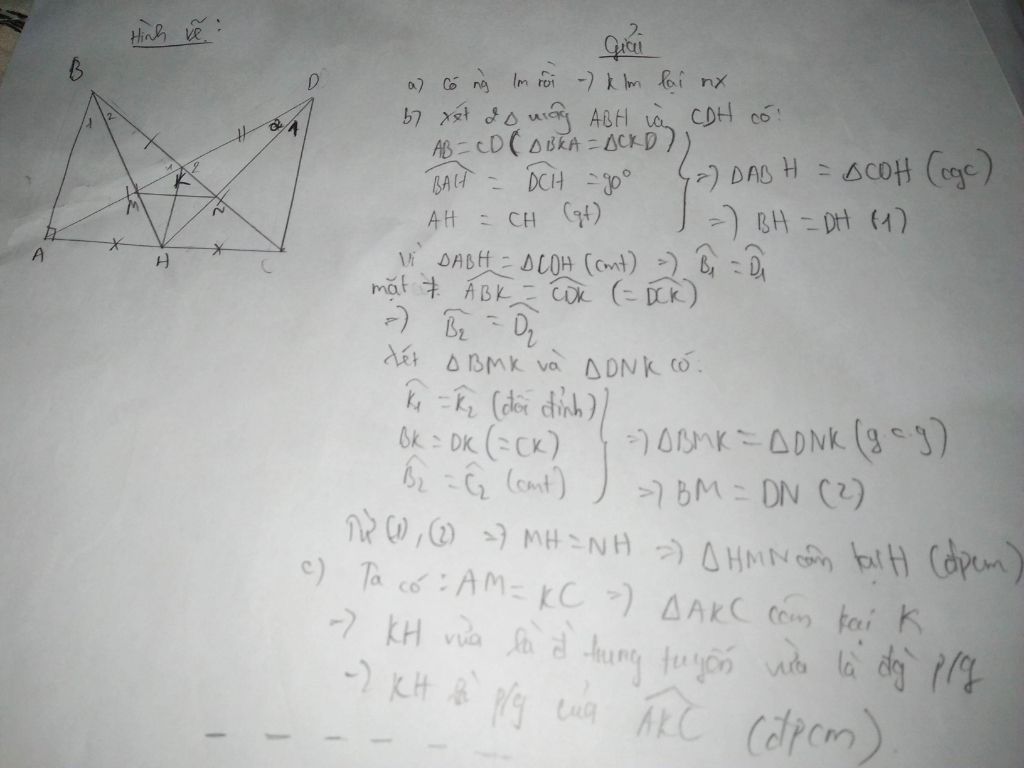 Hình vẽ:
B
D
1 2
2 1
1 2
K
M
N
A
H
C
Giải
a) Có ng lm rồi -> k lm lại nx
b) Xét 2 Δ vuông ABH và CDH có:
AB = CD (ΔBKA = ΔCKD)
BAH = DCH = 90°
AH = CH (gt)
=> ΔABH = ΔCDH (cgc)
=> BH = DH (1)
Vì ΔABH = ΔCDH (cmt) => B1 = D1
mặt ≠ ABK = CDK (= DCK)
=> B2 = D2
Xét ΔBMK và ΔDNK có:
K1 = K2 (đối đỉnh)
BK = DK (= CK)
B2 = C2 (cmt)
=> ΔBMK = ΔDNK (g.c.g)
=> BM = DN (2)
Từ (1), (2) => MH = NH => ΔHMN cân tại H (đpcm)
c) Ta có: AM = KC => ΔAKC cân tại K
-> KH vừa là đ trung tuyến vừa là đg p/g
-> KH là p/g của AKC (đpcm).